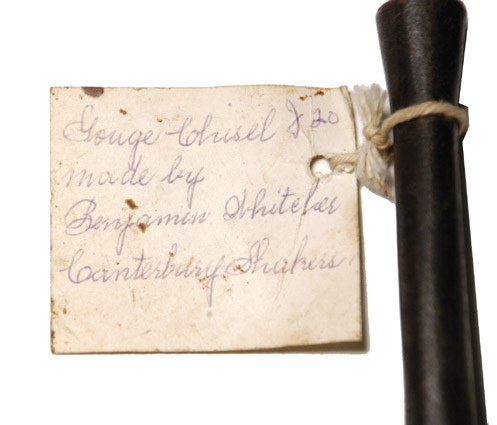 Gouge Chisel J 20
made by
Benjamin Whitcher
Canterbury Shakers